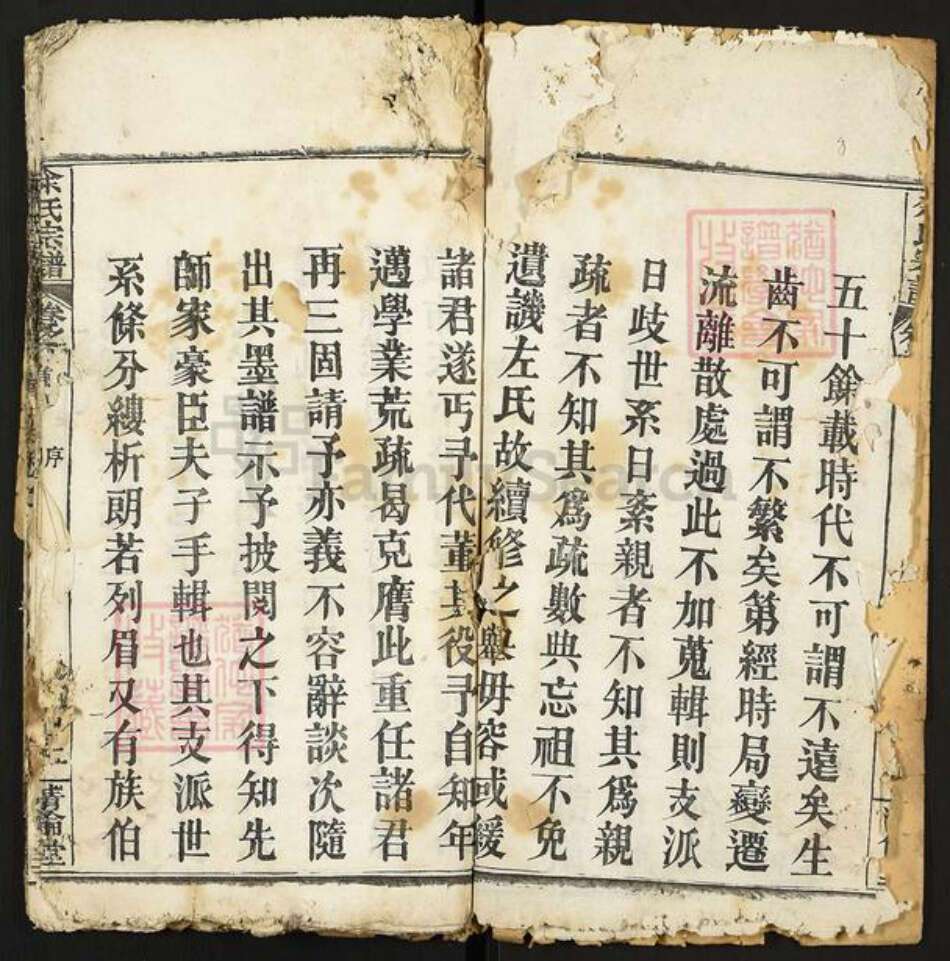 五十餘載時代不可謂不遠矣生
齒不可謂不繁矣第經時局變遷
流離散處過此不加蒐輯則支派
日歧世系日紊親者不知其爲親
疏者不知其爲疏數典忘祖不免
遺譏左氏故續修之舉毋容或緩
諸君遂丐予代董其役予自知年
邁學業荒疏曷克膺此重任諸君
再三固請予亦義不容辭談次隨
出其墨譜示予披閱之下得知先
師家豪臣夫子手輯也其支派世
系條分縷析朗若列眉又有族伯
余氏宗譜
卷之
序
FamilySearch